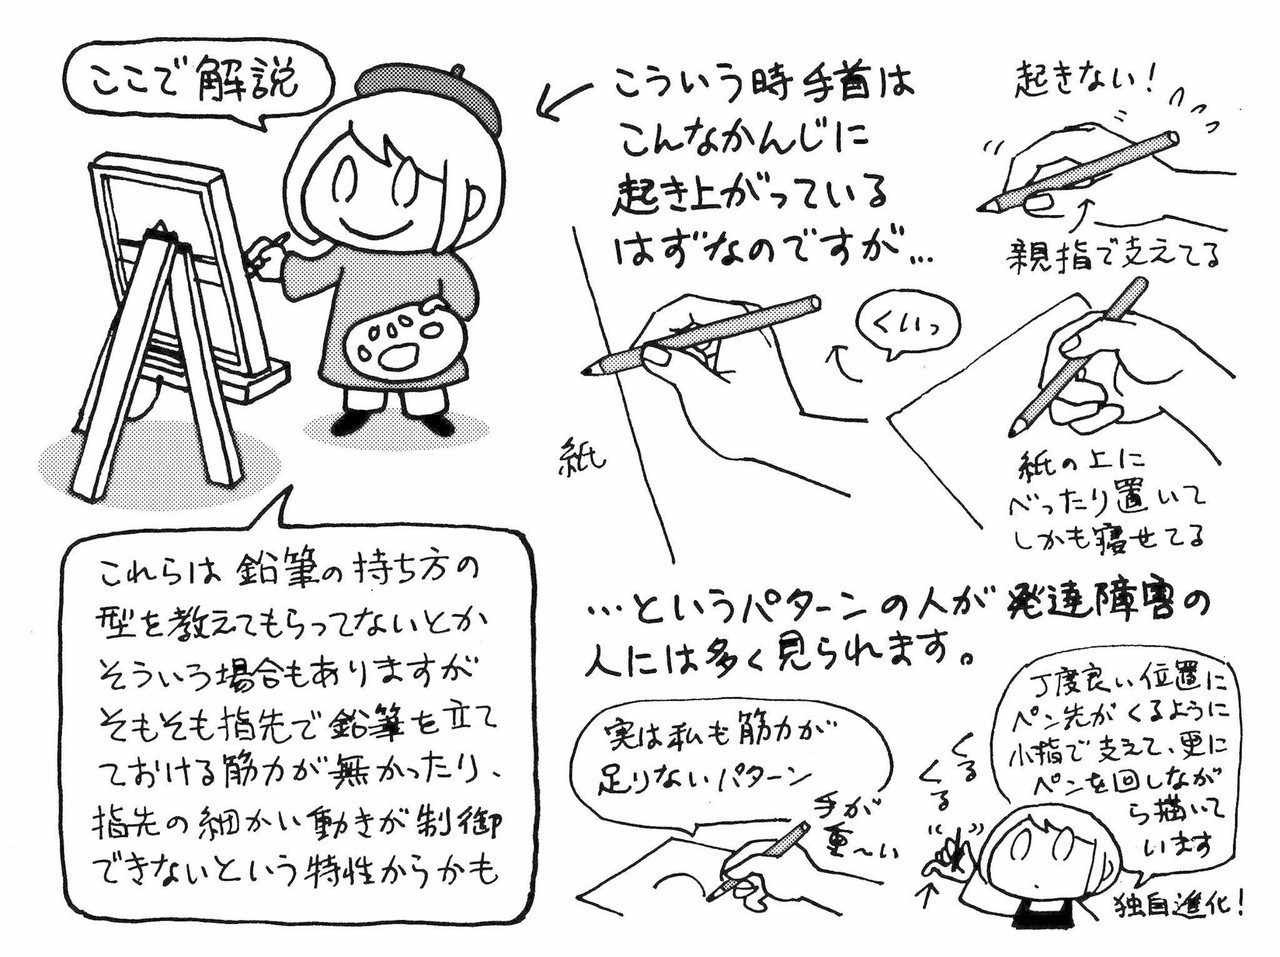 ここで解説
こういう時手首は
こんなかんじに
起き上がっている
はずなのですが…
くいっ
紙
起きない!
親指で支えてる
紙の上に
べったり置いて
しかも寝せてる
これらは鉛筆の持ち方の
型を教えてもらってないとか
そういう場合もありますが
そもそも指先で鉛筆を立て
ておける筋力が無かったり、
指先の細かい動きが制御
できないという特性からかも
…というパターンの人が発達障害の
人には多く見られます。
実は私も筋力が
足りないパターン
手が
重〜い
丁度良い位置に
ペン先がくるように
小指で支えて、更に
ペンを回しなが
ら描いて
います
くる
くる
独自進化!